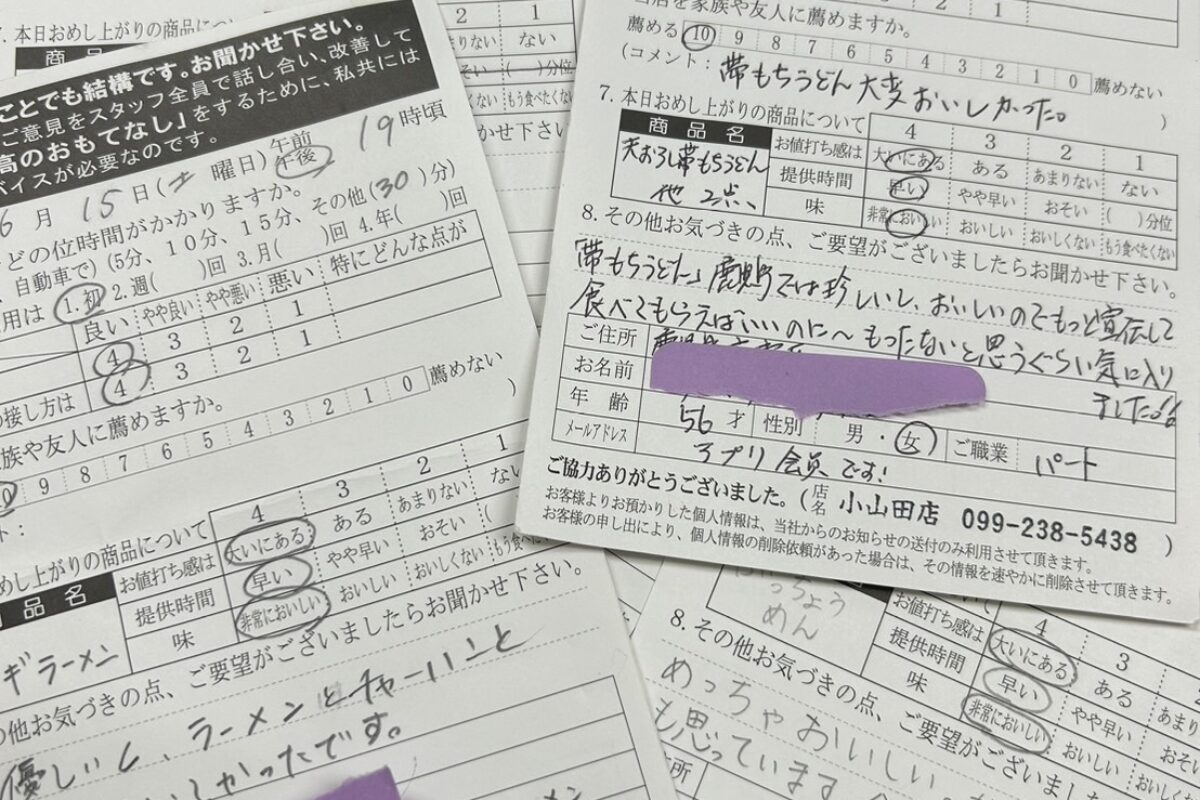 7. 本日おめし上がりの商品につい
2 1
まらない ない
( )分位
もう食べたくない
ことでも結構です。お聞かせ下さい。
ご意見をスタッフ全員で話し合い、改善して
高のおもてなし」をするために、私共には
バイスが必要なのです。
6 月 15 日(土 曜日) 午前 午後 19 時頃
どの位時間がかかりますか。
自動車で) (5分、10分、15分、その他(30)分)
用は 1.初 2.週( )回 3.月( )回 4.年( )回
良い やや良い やや悪い 悪い 特にどんな点が
4 3 2 1
4 3 2 1
の接し方は
族や友人に薦めますか。
9 8 7 6 5 4 3 2 1 0 薦めない
)
めし上がりの商品について
4 3 2 1
品 名 お値打ち感は 大いにある ある あまりない ない
提供時間 早い やや早い おそい (
味 非常においしい おいしい おいしくない もう食べた
ギラーメン
の他お気づきの点、ご要望がございましたらお聞かせ下さい。
優しいし、ラーメンとチャーハンと
しかったです。
メン
店を家族や友人に薦めますか。
2 1
薦める 10 9 8 7 6 5 4 3 2 1 0 薦めない
(コメント: 帯もちうどん大変おいしかった。 )
7. 本日おめし上がりの商品について
4 3 2 1
商 品 名 お値打ち感は 大いにある ある あまりない ない
天おろし帯もちうどん 提供時間 早い やや早い おそい ( )分位
他 2点、 味 非常においしい おいしい おいしくない もう食べたくない
8. その他お気づきの点、ご要望がございましたらお聞かせ下さい。
「帯もちうどん」鹿児島では珍しいし、おいしいのでもっと宣伝して
食べてもらえばいいのに〜もったないと思うぐらい気に入り
ました。
ご住所
お名前
年 齢 56 才 性別 男・女 ご職業 パート
メールアドレス アプリ会員です!
ご協力ありがとうございました。(店名 小山田店 099-238-5438 )
お客様よりお預かりした個人情報は、当社からのお知らせの送付のみ利用させて頂きます。
お客様の申し出により、個人情報の削除依頼があった場合は、その情報を速やかに削除させて頂きます。
っちょう
めん
4 3
お値打ち感は 大いにある ある あまり
提供時間 早い やや早い おそ
味 非常においしい おいしい おいし
8. その他お気づきの点、ご要望がございまし
めっちゃおいしい
も思っています
所